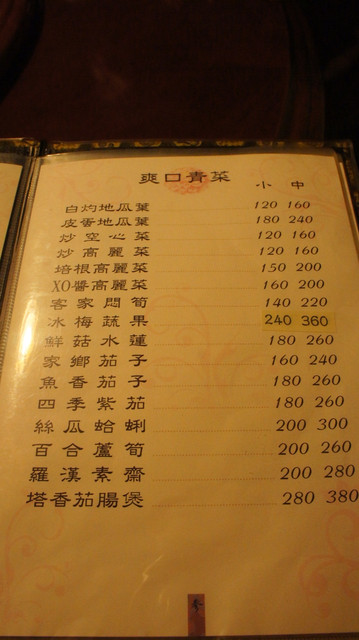 爽口青菜
小 中
白灼地瓜葉 120 160
皮蛋地瓜葉 180 240
炒空心菜 120 160
炒高麗菜 120 160
培根高麗菜 150 200
XO醬高麗菜 160 200
客家悶筍 140 220
冰梅蔬果 240 360
鮮菇水蓮 180 260
家鄉茄子 160 240
魚香茄子 180 260
四季紫茄 180 260
絲瓜蛤蜊 200 300
百合蘆筍 200 260
羅漢素齋 200 280
塔香茄腸煲 280 380